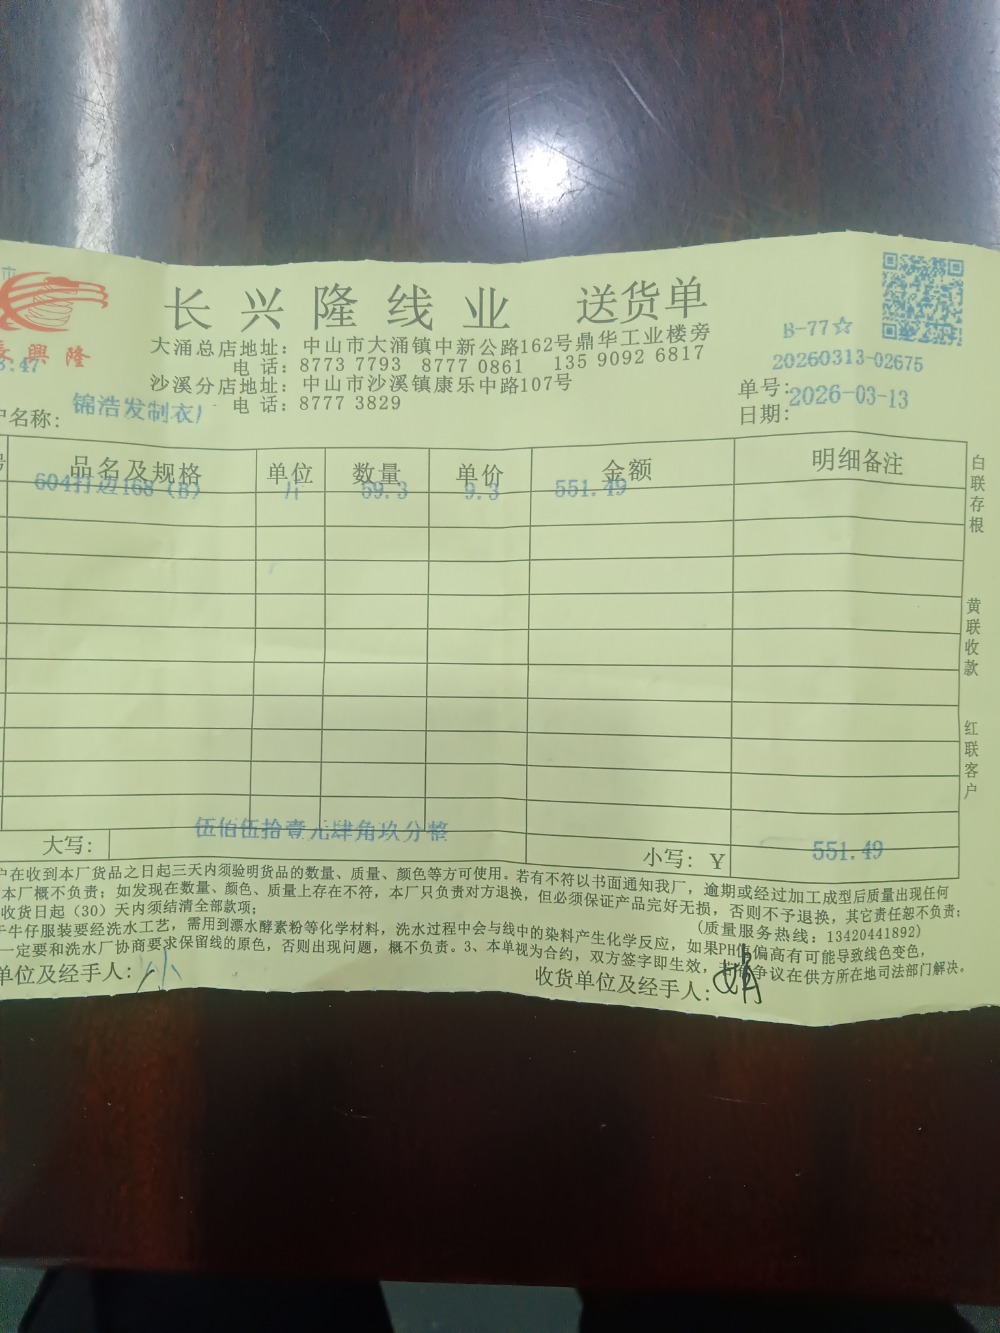 长兴隆线业 送货单
B-77☆
大涌总店地址：中山市大涌镇中新公路162号鼎华工业楼旁
電 话：8773 7793 8777 0861 135 9092 6817
沙溪分店地址：中山市沙溪镇康乐中路107号
電 话：8777 3829
興隆
:47
单号：20260313-02675
日期：2026-03-13
户名称：锦浩发制衣厂
品名及规格 单位 数量 单价 金额 明细备注
604打边168（B） 59.3 9.3 551.49
白联存根
黄联收款
红联客户
大写：伍佰伍拾壹元肆角玖分整
小写：￥ 551.49
户在收到本厂货品之日起三天内须验明货品的数量、质量、颜色等方可使用。若有不符以书面通知我厂，逾期或经过加工成型后质量出现任何
本厂概不负责；如发现在数量、颜色、质量上存在不符，本厂只负责对方退换，但必须保证产品完好无损，否则不予退换，其它责任恕不负责；
收货日起（30）天内须结清全部款项；
（质量服务热线：13420441892）
牛仔服装要经洗水工艺，需用到漂水酵素粉等化学材料，洗水过程中会与线中的染料产生化学反应，如果PH值偏高有可能导致线色变色，
一定要和洗水厂协商要求保留线的原色，否则出现问题，概不负责。3、本单视为合约，双方签字即生效，争议在供方所在地司法部门解决。
单位及经手人：
收货单位及经手人：